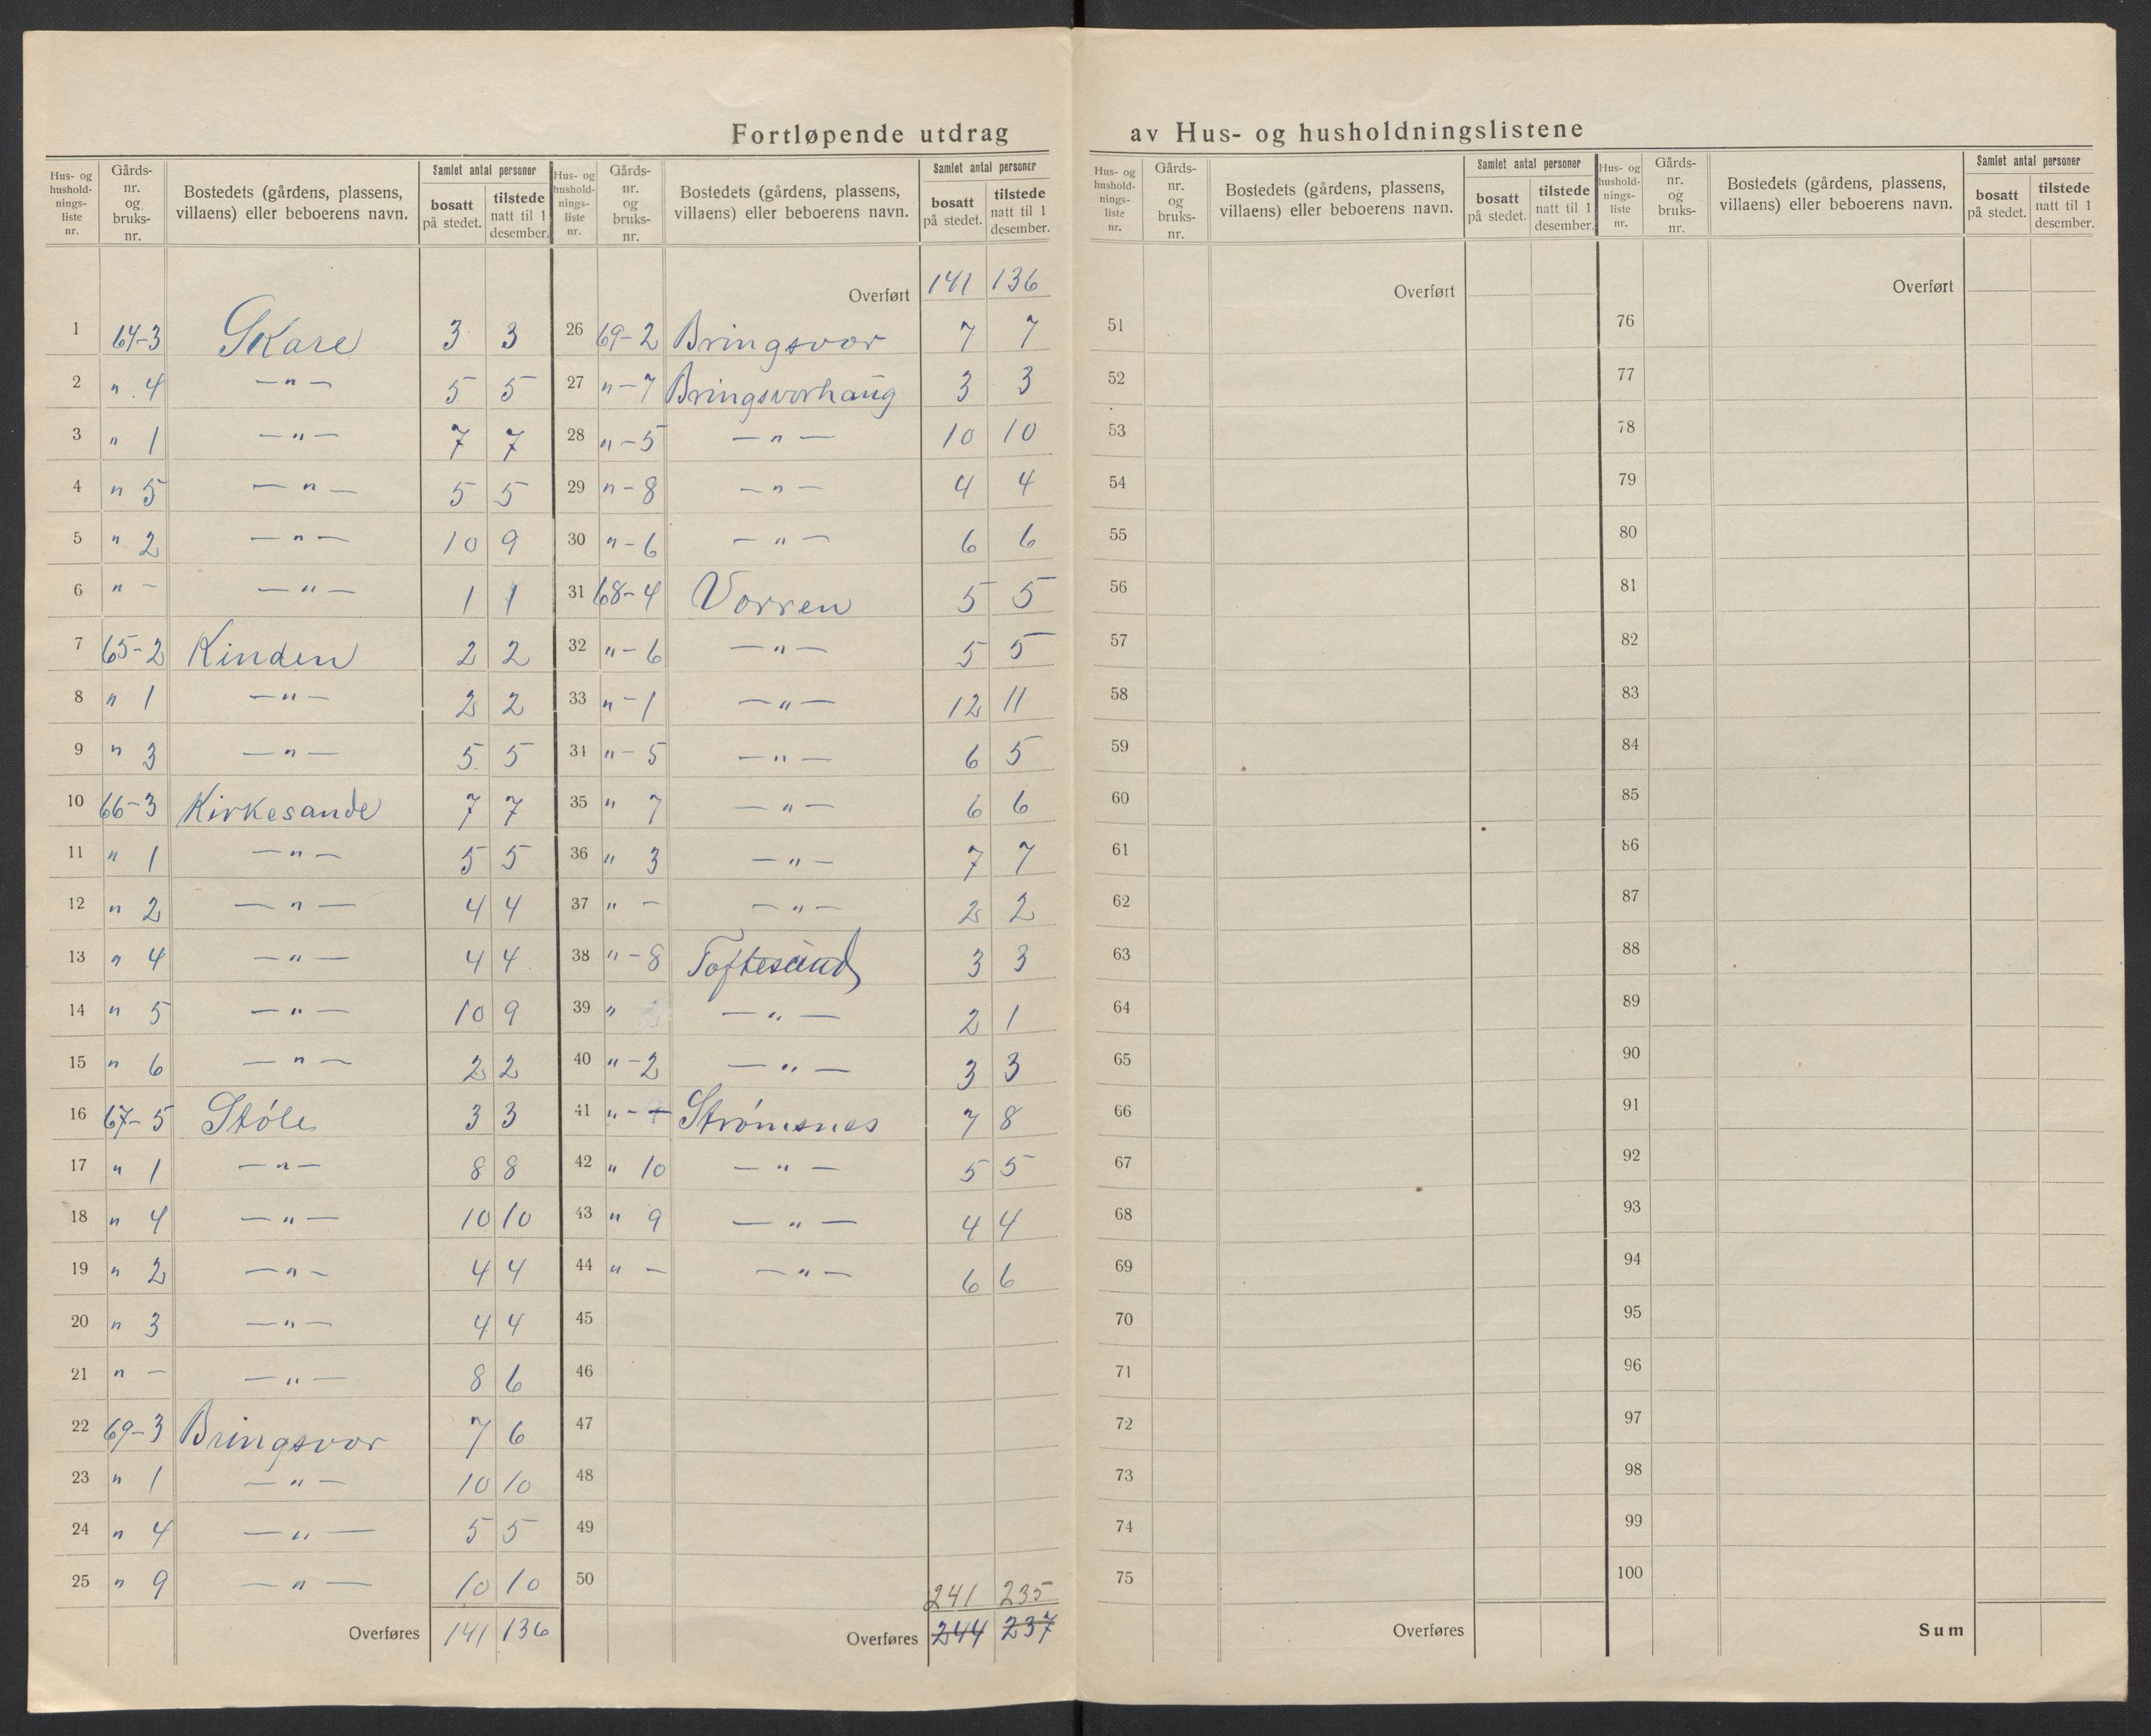 Fortløpende utdrag av Hus- og husholdningslistene
Hus- og husholdnings-liste nr. | Gårds-nr. og bruks-nr. | Bostedets (gårdens, plassens, villaens) eller beboerens navn. | Samlet antal personer | bosatt på stedet. | tilstede natt til 1 desember.
1 64-3 Skare 3 3
2 " 4 —"— 5 5
3 " 1 —"— 7 7
4 " 5 —"— 5 5
5 " 2 —"— 10 9
6 " - —"— 1 1
7 65-2 Kinden 2 2
8 " 1 —"— 2 2
9 " 3 —"— 5 5
10 66-3 Kirkesande 7 7
11 " 1 —"— 5 5
12 " 2 —"— 4 4
13 " 4 —"— 4 4
14 " 5 —"— 10 9
15 " 6 —"— 2 2
16 67-5 Støle 3 3
17 " 1 —"— 8 8
18 " 4 —"— 10 10
19 " 2 —"— 4 4
20 " 3 —"— 4 4
21 " - —"— 8 6
22 69-3 Bringsvor 7 6
23 " 1 —"— 10 10
24 " 4 —"— 5 5
25 " 9 —"— 10 10
Overføres 141 136
Hus- og husholdnings-liste nr. | Gårds-nr. og bruks-nr. | Bostedets (gårdens, plassens, villaens) eller beboerens navn. | Samlet antal personer | bosatt på stedet. | tilstede natt til 1 desember.
Overført 141 136
26 69-2 Bringsvor 7 7
27 "-7 Bringsvorhaug 3 3
28 "-5 —"— 10 10
29 "-8 —"— 4 4
30 "-6 —"— 6 6
31 68-4 Vorren 5 5
32 "-6 —"— 5 5
33 "-1 —"— 12 11
34 "-5 —"— 6 5
35 " 7 —"— 6 6
36 " 3 —"— 7 7
37 " - —"— 2 2
38 "-8 Toftesund 3 3
39 " —"— 2 1
40 "-2 —"— 3 3
41 "- Strømsnes 7 8
42 " 10 —"— 5 5
43 " 9 —"— 4 4
44 " - —"— 6 6
45
46
47
48
49
50
241 235
Overføres 244 237
Hus- og husholdnings-liste nr. | Gårds-nr. og bruks-nr. | Bostedets (gårdens, plassens, villaens) eller beboerens navn. | Samlet antal personer | bosatt på stedet. | tilstede natt til 1 desember.
Overført
51
52
53
54
55
56
57
58
59
60
61
62
63
64
65
66
67
68
69
70
71
72
73
74
75
Overføres
Hus- og husholdnings-liste nr. | Gårds-nr. og bruks-nr. | Bostedets (gårdens, plassens, villaens) eller beboerens navn. | Samlet antal personer | bosatt på stedet. | tilstede natt til 1 desember.
Overført
76
77
78
79
80
81
82
83
84
85
86
87
88
89
90
91
92
93
94
95
96
97
98
99
100
Sum